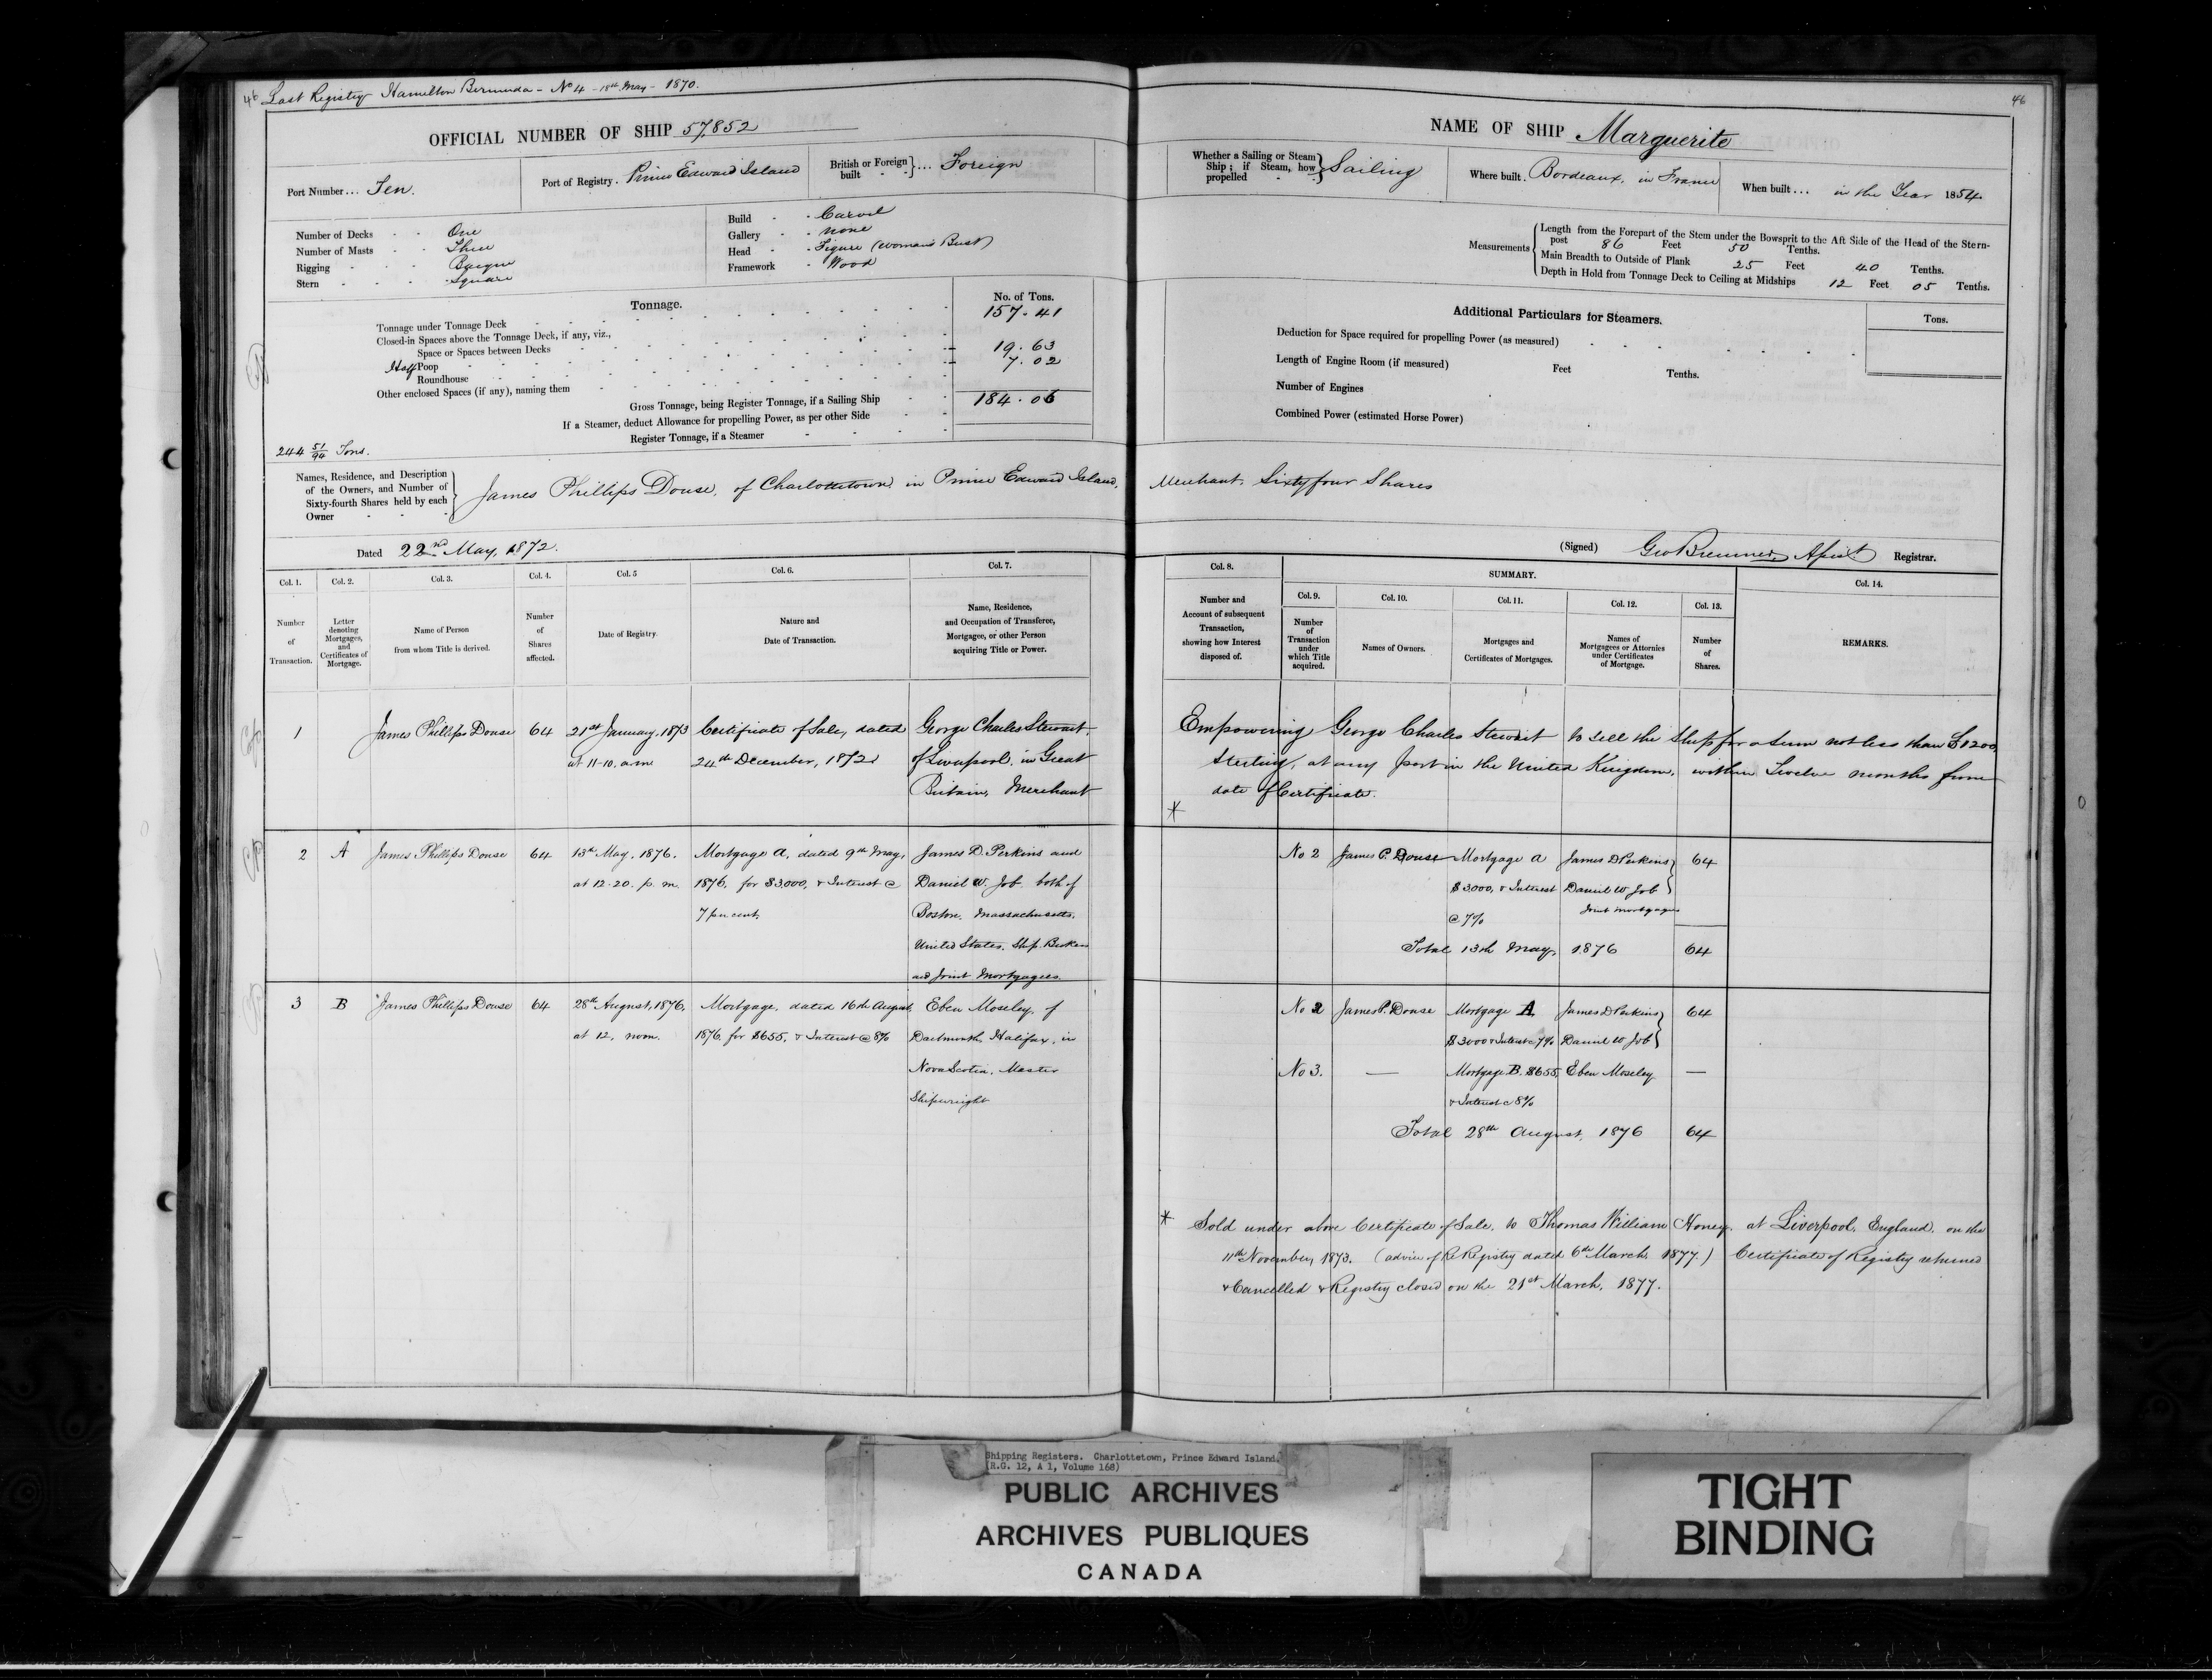 46 Last Registry Hamilton Bermuda - No 4 - 18th May - 1870.
OFFICIAL NUMBER OF SHIP 57,852
Port Number ... Ten.
Port of Registry . Prince Edward Island
British or Foreign built } ... Foreign
Number of Decks - - One
Number of Masts - - Three
Rigging - - - Barque
Stern - - - Square
Build - - Carvel
Gallery - - none
Head - - Figure (Woman's Bust)
Framework - Wood
Tonnage.
No. of Tons.
Tonnage under Tonnage Deck 157.41
Closed-in Spaces above the Tonnage Deck, if any, viz.,
Space or Spaces between Decks 19.63
Half Poop 7.02
Roundhouse
Other enclosed Spaces (if any), naming them
Gross Tonnage, being Register Tonnage, if a Sailing Ship 184.06
If a Steamer, deduct Allowance for propelling Power, as per other Side
Register Tonnage, if a Steamer
244 51/94 Tons.
Names, Residence, and Description
of the Owners, and Number of
Sixty-fourth Shares held by each
Owner
James Phillips Douse, of Charlottetown in Prince Edward Island,
Dated 22nd May, 1872.
Col. 1. Col. 2. Col. 3. Col. 4. Col. 5 Col. 6. Col. 7.
Number of Transaction.
Letter denoting Mortgages, and Certificates of Mortgage.
Name of Person from whom Title is derived.
Number of Shares affected.
Date of Registry.
Nature and Date of Transaction.
Name, Residence, and Occupation of Transferee, Mortgagee, or other Person acquiring Title or Power.
1 James Phillips Douse 64 21st January, 1873 Certificate of Sale, dated George Charles Stewart,
at 11-10. a.m. 24th December, 1872 of Liverpool, in Great
Britain, Merchant
2 A James Phillips Douse 64 13th May, 1876. Mortgage A, dated 9th May, James D. Perkins and
at 12-20. p. m. 1876, for $3,000, & Interest @ Daniel W. Job both of
7 per cent. Boston, Massachusetts,
United States. Ship Brokers
and Joint Mortgagees.
3 B James Phillips Douse 64 28th August, 1876, Mortgage, dated 16th August, Eben Moseley, of
at 12, noon. 1876, for $655, & Interest @ 8% Dartmouth, Halifax, in
Nova Scotia, Master
Shipwright
46
NAME OF SHIP Marguerite
Whether a Sailing or Steam Ship ; if Steam, how propelled } Sailing
Where built . Bordeaux, in France
When built ... in the Year 1854.
Measurements
Length from the Forepart of the Stem under the Bowsprit to the Aft Side of the Head of the Stern-
post 86 Feet 50 Tenths.
Main Breadth to Outside of Plank 25 Feet 40 Tenths.
Depth in Hold from Tonnage Deck to Ceiling at Midships 12 Feet 05 Tenths.
Additional Particulars for Steamers.
Tons.
Deduction for Space required for propelling Power (as measured)
Length of Engine Room (if measured) Feet Tenths.
Number of Engines
Combined Power (estimated Horse Power)
Merchant, Sixty four Shares
(Signed) Geo Bremner, Registrar.
Col. 8. SUMMARY. Col. 14.
Col. 9. Col. 10. Col. 11. Col. 12. Col. 13.
Number and Account of subsequent Transaction, showing how Interest disposed of.
Number of Transaction under which Title acquired.
Names of Owners.
Mortgages and Certificates of Mortgages.
Names of Mortgagees or Attornies under Certificates of Mortgage.
Number of Shares.
REMARKS.
Empowering George Charles Stewart to sell the Ship for a Sum not less than £1200,
Sterling, at any port in the United Kingdom, within Twelve months from
date of Certificate.
*
No 2 James P. Douse Mortgage A James D Perkins } 64
$3,000, & Interest Daniel W Job
@ 7% Joint Mortgagees
Total 13th May, 1876 64
No 2 James P. Douse Mortgage A, James D Perkins } 64
$3000 & Interest @ 7% Daniel W Job
No 3. — Mortgage B. $655, Eben Moseley —
& Interest @ 8%
Total 28th August, 1876 64
* Sold under above Certificate of Sale, to Thomas William Honey, at Liverpool, England, on the
11th November, 1873. (advice of Re Registry dated 6th March, 1877) Certificate of Registry returned
& Cancelled & Registry closed on the 21st March, 1877.
Shipping Registers. Charlottetown, Prince Edward Island.
(R.G. 12, A 1, Volume 168)
PUBLIC ARCHIVES
ARCHIVES PUBLIQUES
CANADA
TIGHT
BINDING